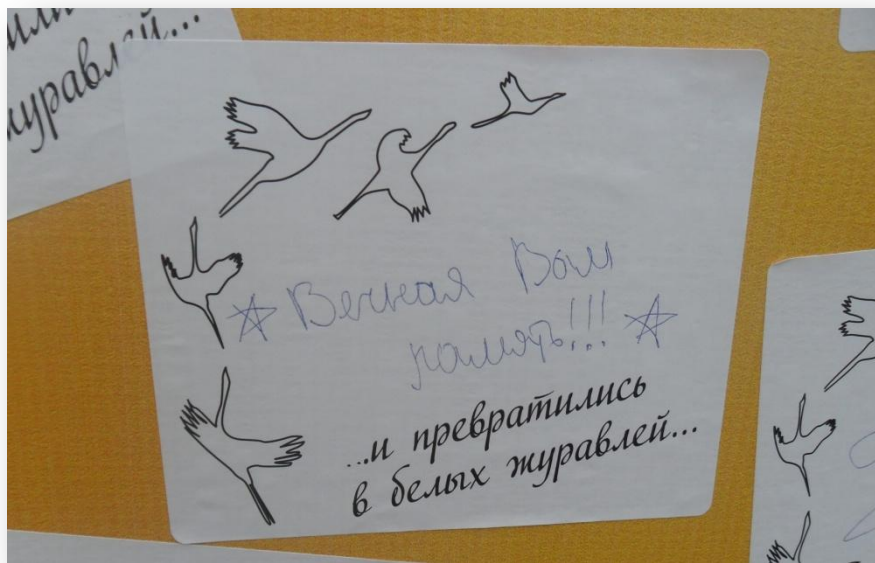 или
журавлей...
Вечная Вам
память!!!
...и превратились
в белых журавлей...